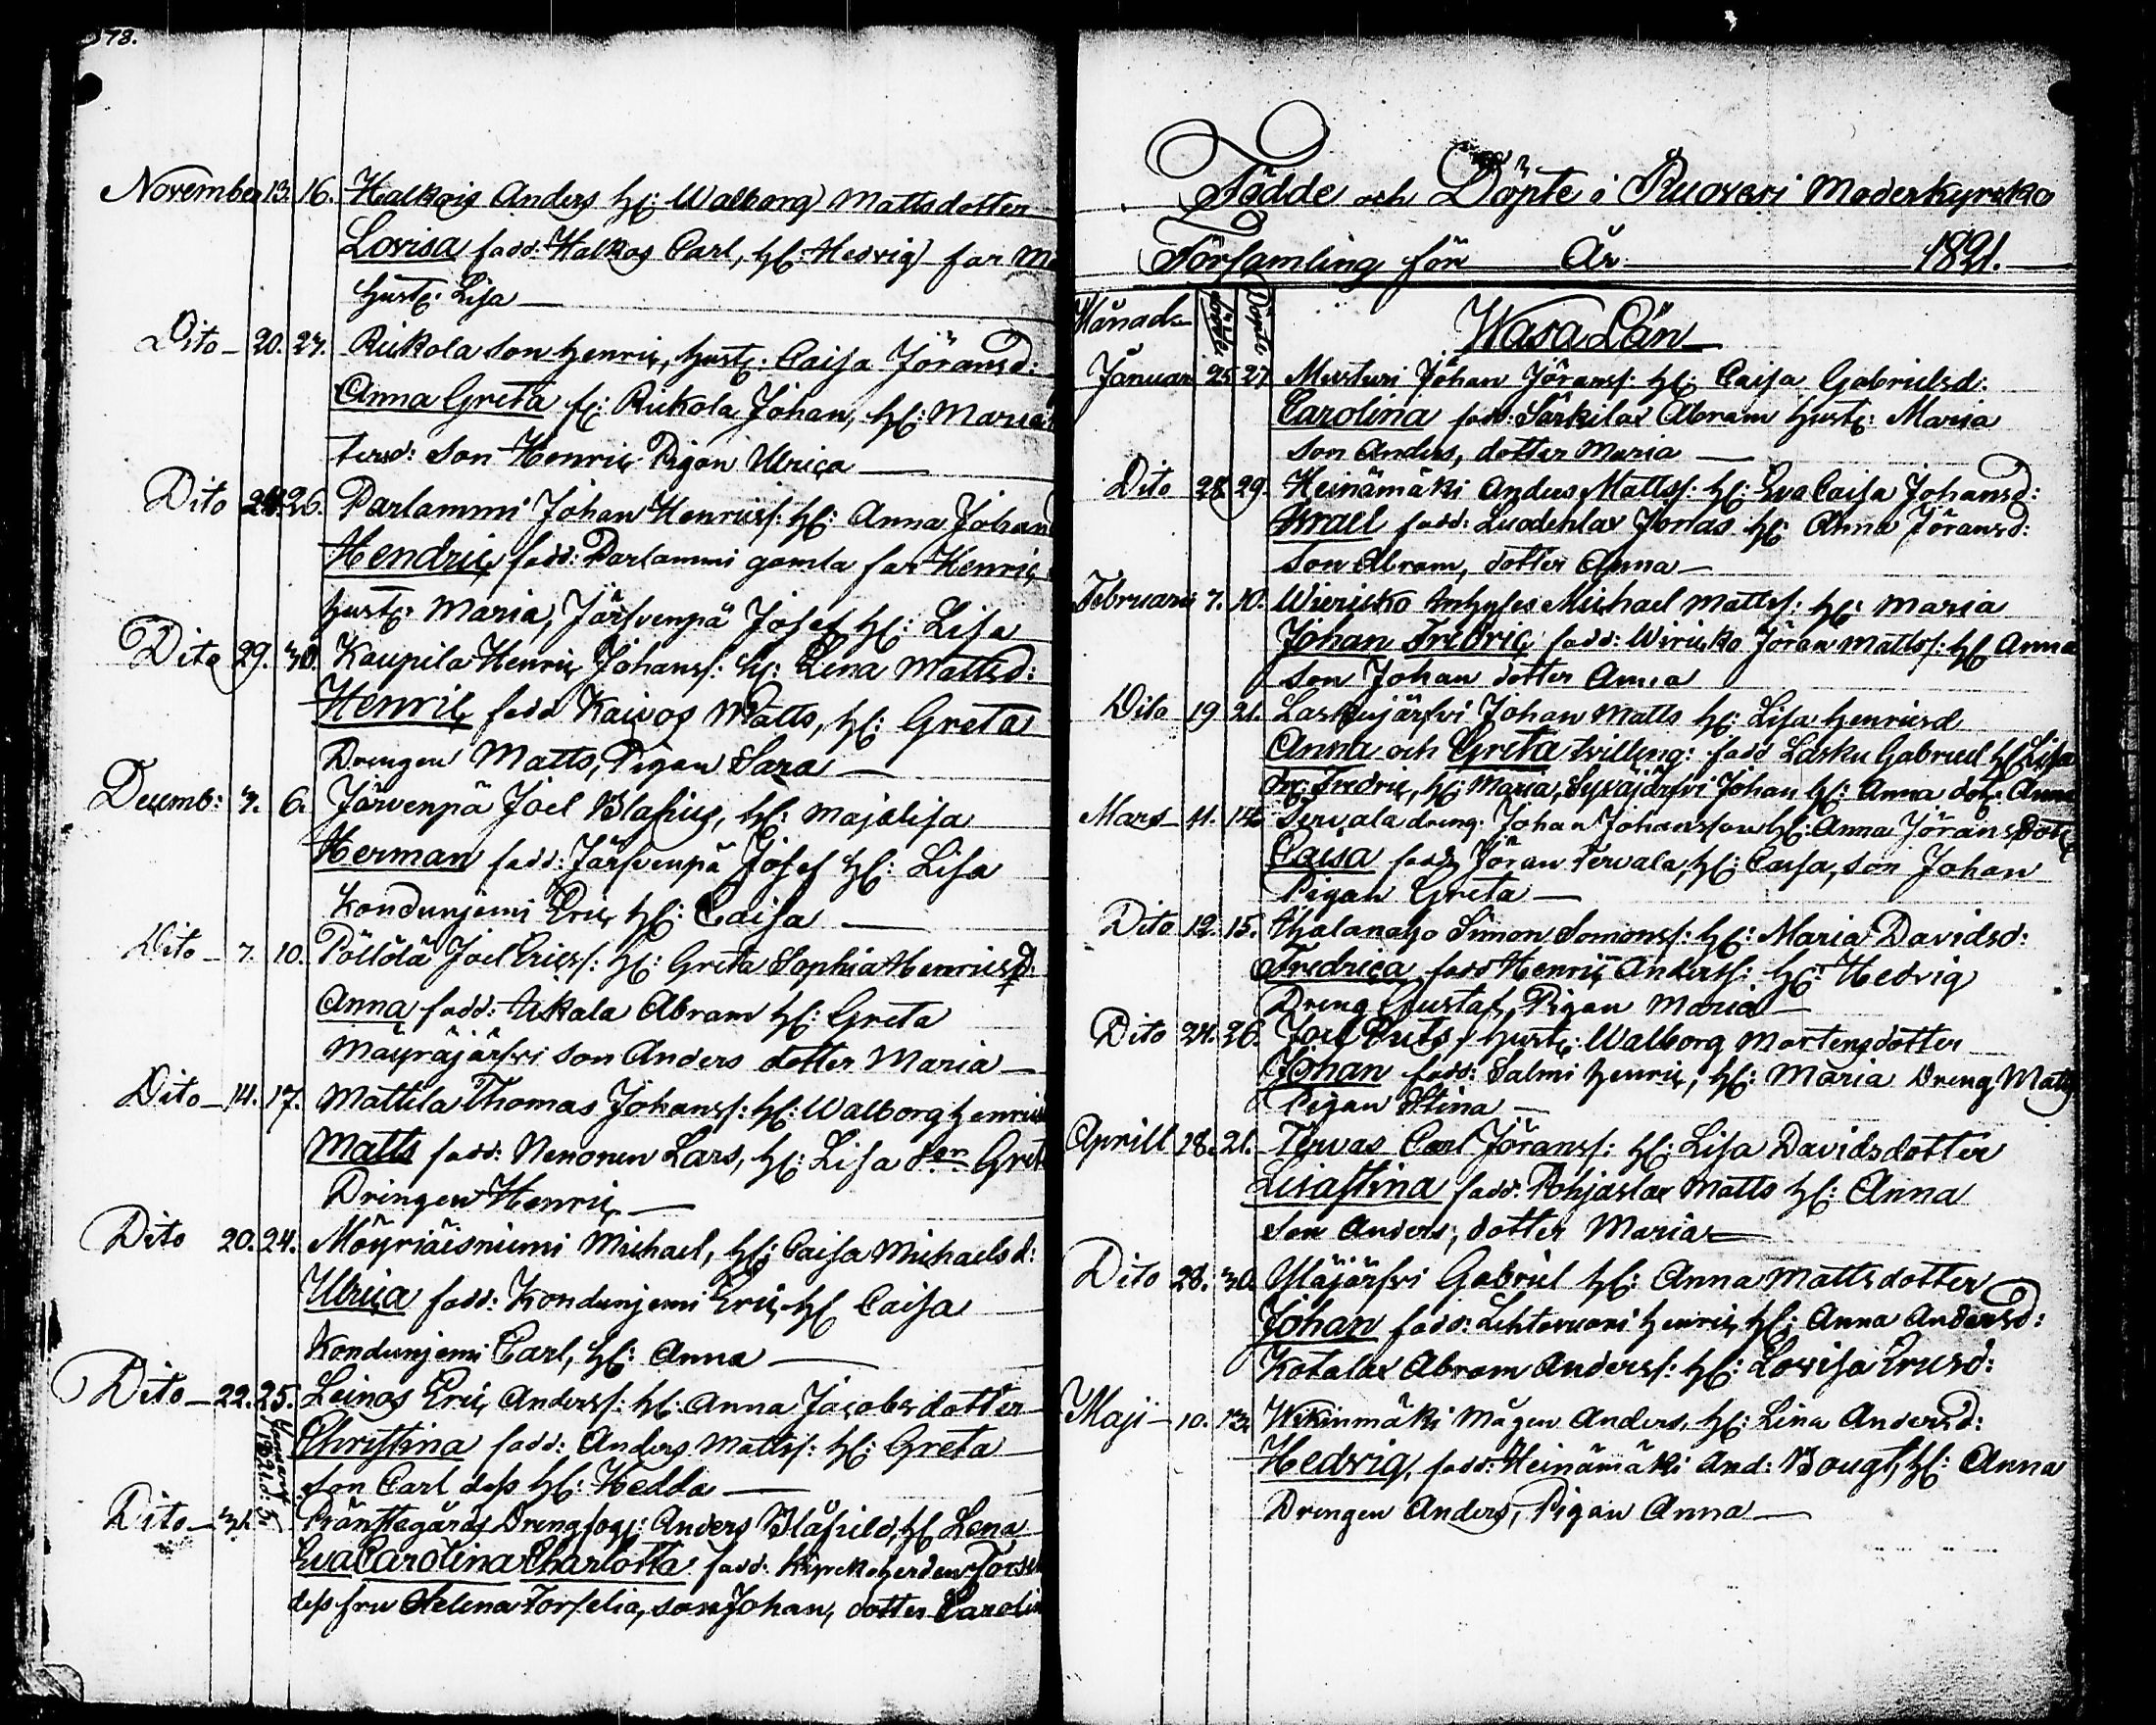 78.
November 13. 16. Halkois Anders hº: Walborg Mattsdotter
Lovisa fadd: Halkos Carl, hº: Hedvig far
hustº: Lisa
Dito 20. 27. Rukola Son Henric, hustº: Caisa Jöransd:
Anna Greta fº: Rukola Johan, hº: Maria
tersd: Son Henric Pigan Ulrica
Dito 26. Parlammi Johan Henricss: hº: Anna Johan
Hendric, fadd: Parlammi gamla far Henric
hustº: Maria, Järfvenpä Josef hº: Lisa
Dito 29. 30. Kaupila Henric Johanss: hº: Lena Mattsd:
Henric fadd Kaivos Matts, hº: Greta
Drengen Matts, Pigan Sara
Decemb: 3. 6. Järvenpä Joel Blasius, hº: Majalisa
Herman fadd: Järfvenpä Josef hº: Lisa
Kondunjemi Eric hº: Caisa
Dito 7. 10. Pöllölä Joel Ericss: hº: Greta Sophia Henricsd:
Anna fadd: Abram hº: Greta
Mäyräjärfvi son Anders dotter Maria
Dito 14. 17. Mattila Thomas Johanss: hº: Walborg Henrics
Matts fadd: Nenonen Lars, hº: Lisa
Drengen Henric
Dito 20. 24. Möyriäisniemi Michael, hº: Caisa Michaelsd:
Ulrica fadd: Kondunjemi Eric hº Caisa
Kondunjemi Carl, hº: Anna
Dito 22. 25. Leinos Eric Anderss: hº: Anna Jacobsdotter
Christina fadd: Anders Mattss: hº: Greta
Son Carl dess hº: Hedda
Dito 31. Januarii 1821. d: 5. Pränstegårds Drengfogd: Anders Blåfield, hº Lena
Eva Carolina Charlotta fadd: Kyrkoherden
dess fru Helena Forselia, son Johan, dotter Carolin
Födde och Döpte i Ruovesi Moderkyrcko
Församling för År 1821.
Månad Födde Döpte Wasa Län
Januari 25 27 Musturi Johan Jöranss: hº: Caisa Gabrielsd:
Carolina fadd: Särkilax Abram hustº: Maria
son Anders, dotter Maria
Dito 28 29. Heinämäki Anders Mattss: hº: Eva Caisa Johansd:
Israel fadd: Luodenlax Jonas hº: Anna Jöransd:
Son Abram, dotter Anna
Februari 7. 10. Wierucko Inhyses Michael Mattss: hº: Maria
Johan Fredric, fadd: Wirucko Jöran Mattss: hº Anna
Son Johan dotter Anna
Dito 19 21. Laskujärfvi Johan Matts hº: Lisa Henricsd
Anna och Greta tvilling: fadd Lasku Gabriel hº Lisa
Fredric, hº: Maria, Syväjärfvi Johan hº: Anna dotº: Anna
Mars 11. 14. Tervala dreng: Johan Johansson hº: Anna Jöransdotº
Caisa fadd, Jöran Tervala, hº: Caisa, Son Johan
Pigan Greta
Dito 12. 15. Halanaho Simon Simonss: hº: Maria Davidsd:
Fredrica, fadd Henric Anderss: hº: Hedvig
Dreng Gustaf, Pigan Maria
Dito 24. 26. Joel hustº: Walborg Mortensdotter
Johan fadd: Salmi Henric, hº: Maria Dreng Matts
Pigan Stina
Aprill 18. 21. Tervas Carl Jöranss: hº: Lisa Davidsdotter
Lisastina fadd: Pohjaslax Matts hº: Anna
Son Anders, dotter Maria
Dito 28. 30. Yläjärfvi Gabriel hº: Anna Mattsdotter
Johan fadd: Lehtovuori Henric, hº: Anna Andersd:
Kotalax Abram Anderss: hº: Lovisa Ericsd:
Maji 10. 13. Wikinmäki Mågen Anders, hº: Lina Andersd:
Hedvig, fadd: Heinämäki And: Bougt, hº: Anna
Drengen Anders, Pigan Anna